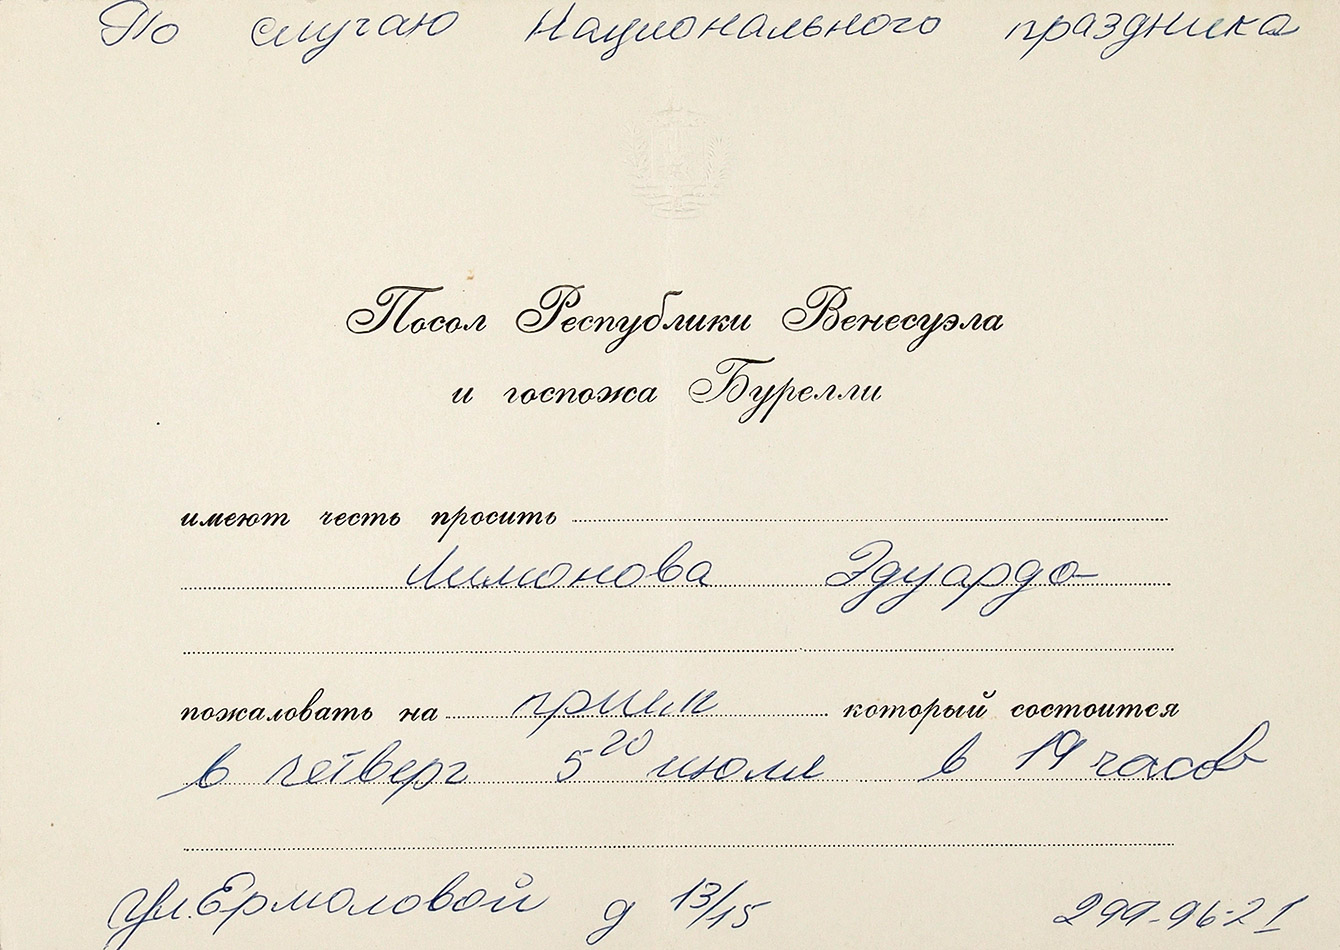 По случаю Национального праздника
Посол Республики Венесуэла
и госпожа Бурелли
имеют честь просить
Лимонова Эдуардо
пожаловать на прием который состоится
в четверг 5го июля в 19 часов
ул. Ермоловой д 13/15 299-96-21